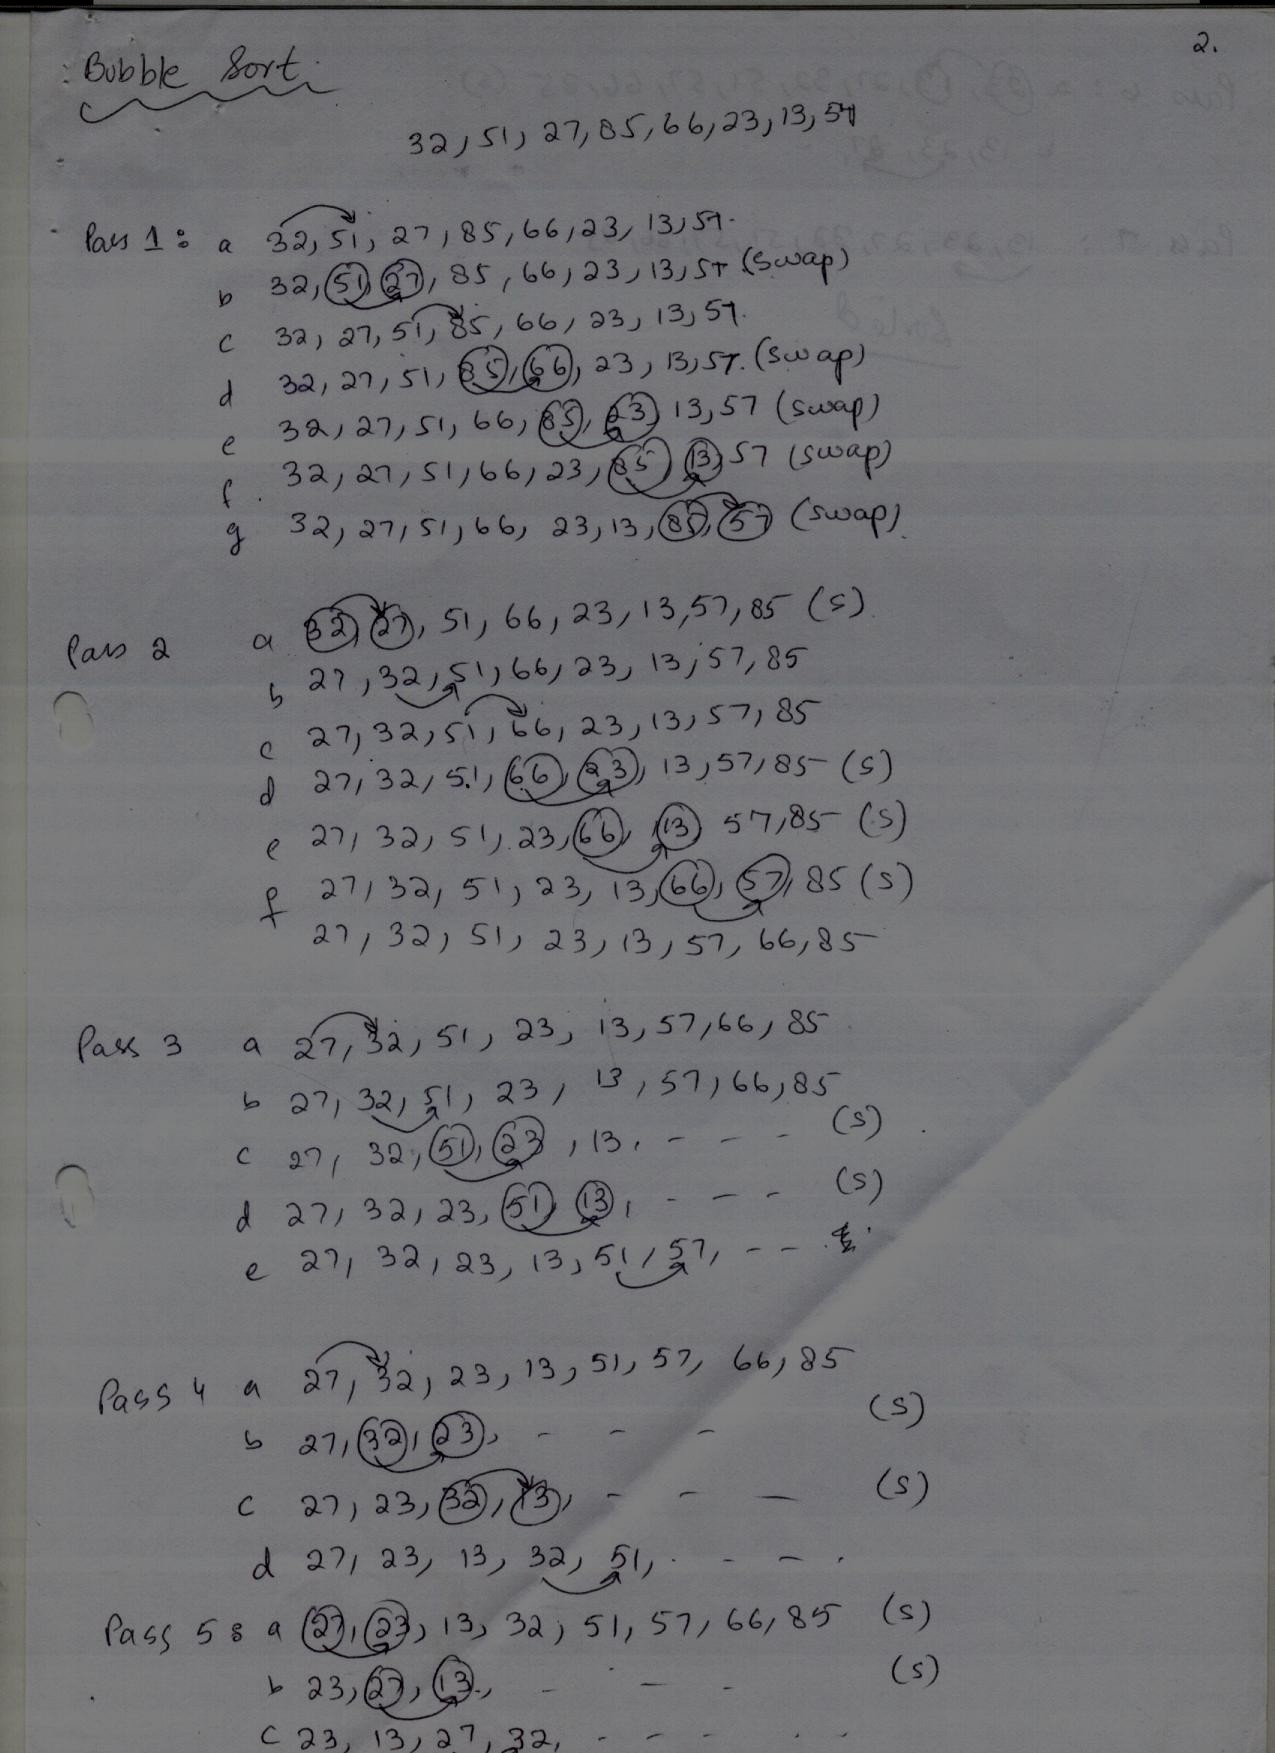 2.
Bubble Sort
32, 51, 27, 85, 66, 23, 13, 57
Pass 1: a 32, 51, 27, 85, 66, 23, 13, 57.
b 32, 51, 27, 85, 66, 23, 13, 57 (swap)
c 32, 27, 51, 85, 66, 23, 13, 57.
d 32, 27, 51, 85, 66, 23, 13, 57. (swap)
e 32, 27, 51, 66, 85, 23, 13, 57 (swap)
f. 32, 27, 51, 66, 23, 85, 13, 57 (swap)
g 32, 27, 51, 66, 23, 13, 85, 57 (swap).
Pass 2 a 32, 27, 51, 66, 23, 13, 57, 85 (s)
b 27, 32, 51, 66, 23, 13, 57, 85
c 27, 32, 51, 66, 23, 13, 57, 85
d 27, 32, 51, 66, 23, 13, 57, 85 (s)
e 27, 32, 51, 23, 66, 13 57, 85 (s)
f 27, 32, 51, 23, 13, 66, 57, 85 (s)
27, 32, 51, 23, 13, 57, 66, 85
Pass 3 a 27, 32, 51, 23, 13, 57, 66, 85
b 27, 32, 51, 23, 13, 57, 66, 85
c 27, 32, 51, 23, 13, - - - (s)
d 27, 32, 23, 51, 13, - - - (s)
e 27, 32, 23, 13, 51, 57, - -
Pass 4 a 27, 32, 23, 13, 51, 57, 66, 85
b 27, 32, 23, - - - (s)
c 27, 23, 32, 13, - - - (s)
d 27, 23, 13, 32, 51, - - - .
Pass 5: a 27, 23, 13, 32, 51, 57, 66, 85 (s)
b 23, 27, 13, - - - (s)
c 23, 13, 27, 32, - - - -